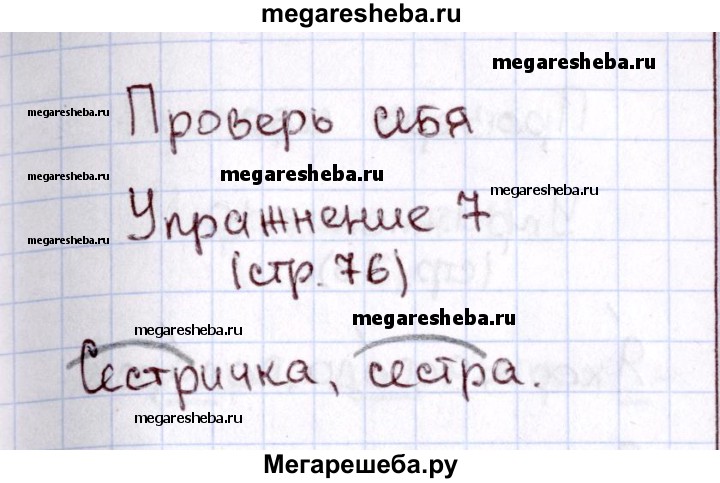 megaresheba.ru
megaresheba.ru
megaresheba.ru
Проверь себя
megaresheba.ru
megaresheba.ru
megaresheba.ru
Упражнение 7
megaresheba.ru
(стр. 76)
megaresheba.ru
megaresheba.ru
Сестричка, сестра.
megaresheba.ru
Мегарешеба.ру